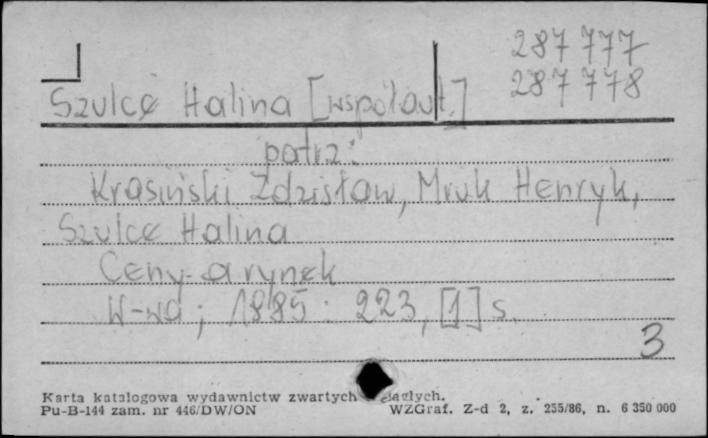 287 777
287 778
Szulce Halina [współaut.]
patrz:
Krasiński Zdzisław, Mruk Henryk,
Szulce Halina
Ceny a rynek
W-wa ; 1985 : 223, [1] s.
3
Karta katalogowa wydawnictw zwartych
Pu-B-144 zam. nr 446/DW/ON WZGraf. Z-d 2, z. 255/86, n. 6 350 000